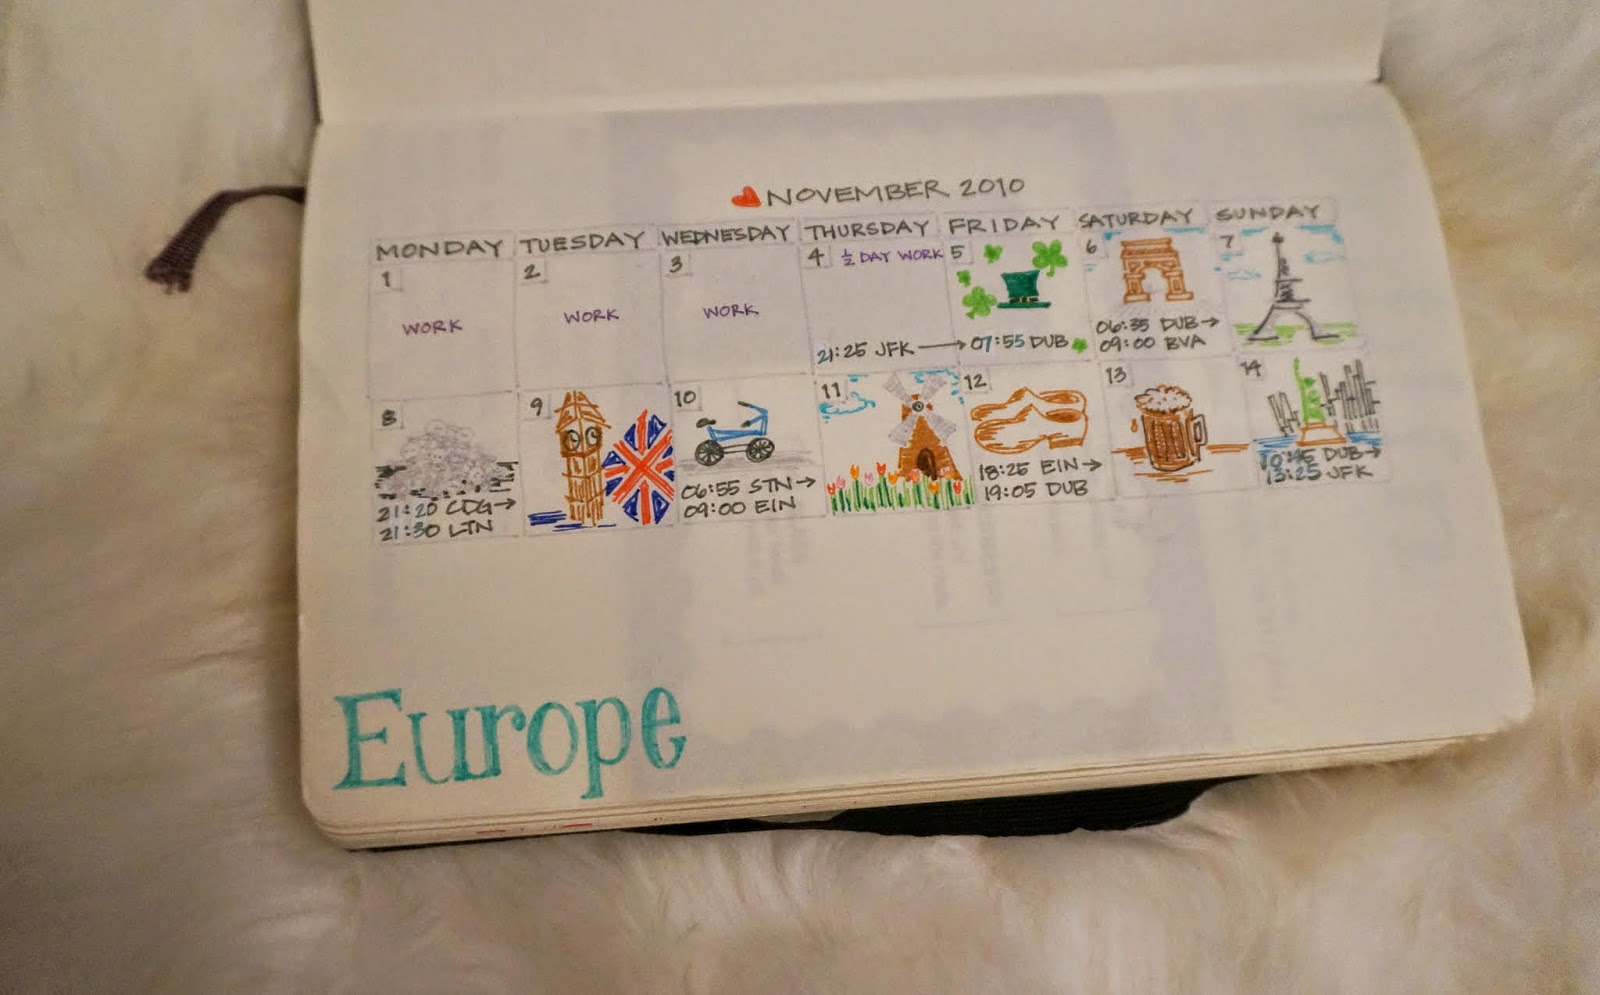 NOVEMBER 2010
MONDAY TUESDAY WEDNESDAY THURSDAY FRIDAY SATURDAY SUNDAY
1
WORK
2
WORK
3
WORK
4 ½ DAY WORK
21:25 JFK →
5
07:55 DUB
6
06:35 DUB→
09:00 BVA
7
8
21:20 CDG→
21:30 LTN
9
10
06:55 STN→
09:00 EIN
11
12
18:25 EIN→
19:05 DUB
13
14
10:45 DUB→
13:25 JFK
Europe